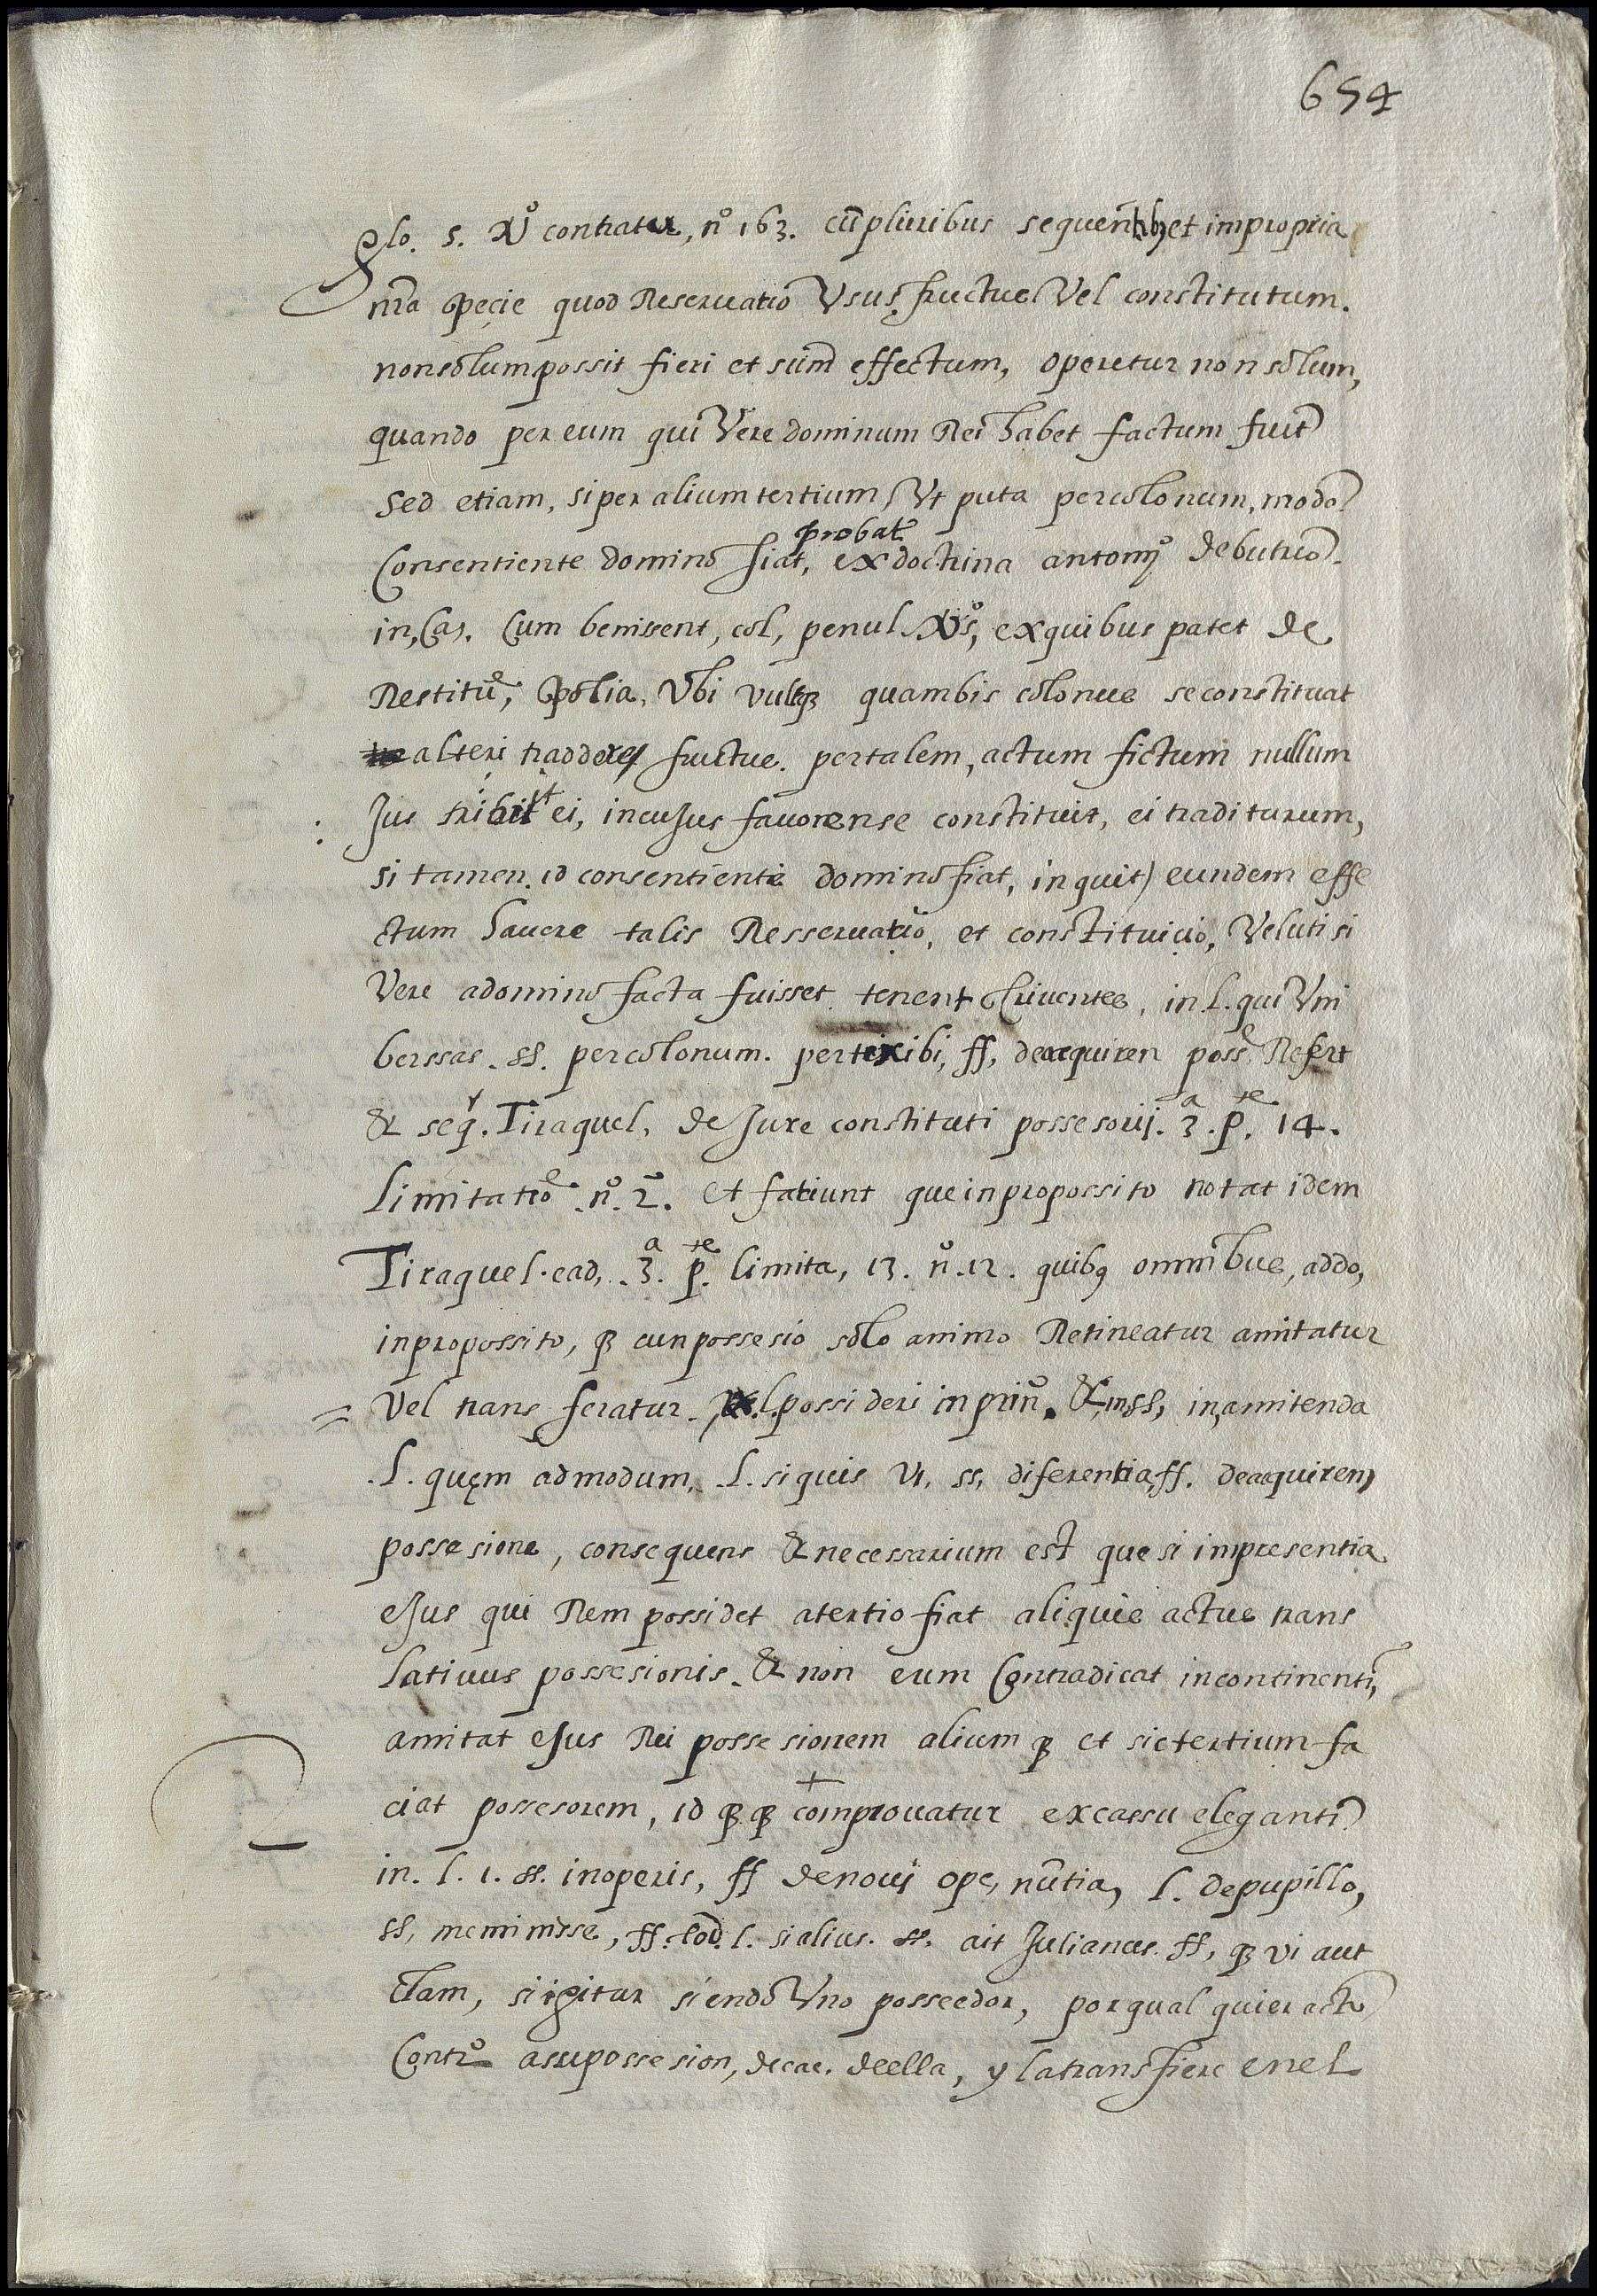 654
glo. 5. Nº contratur, nº 163. cũ pluribus sequentibꝫ et impropria
nr̃a specie quod Reseruatio Vsus fructus Vel constitutum.
non solum possit fieri et suũ effectum, operetur non solum,
quando per eum qui Vere dominum Rei habet factum fuit
sed etiam, si per alium tertium, Vt puta per colonum, modo
probat̃
Consentiente domino fiat, ex doctrina antonij de butrio.
in, Ca,. Cum benissent, col, penul, Xºs, ex quibus patet de
Restitue, spolia, Vbi vult qꝫ quambis colonus se constituat
alteri tradderes fructus. per talem, actum fictum nullum
Jus tribuit ei, in cuJus fauorem se constituit, ei traditurum,
si tamen. id consentiente domino fiat, inquit) eundem effe
ctum hauere talis Resseruatio, et constituiçio, Veluti si
Vere a domino facta fuisset tenent scriuentes, in l. qui Vni
berssas. ss. per colonum. per tex ibi, ff, de acquiren posse Refert
& seqʳ. Tiraquel, de Jure constituti possesorij. 3ª. pᵗᵉ. 14.
limitatioe. nº. 2. et fatiunt que in propossito notat idem
Tiraquel. ead,. 3ª. pᵗᵉ. limita, 13. nº. 12. quibꝰ omnibus, addo,
in propossito, qꝫ cun possesio solo animo Retineatur amitatur
Vel trans feratur. l. possideri in prinº. &, in ss, in amitenda
.l. quęm ad modum,. l. si quis Vt, ss, diferentia, ff. de acquiren,
possesione, consequens & necessarium est que si in presentia
eJus qui Rem possidet a tertio fiat aliquis actus trans
latiuus possesionis. & non eum Contradicat incontinenti,
amitat eJus Rei possesionem alium qꝫ et sic tertium fa
ciat possesorem, id qꝫ qꝫ comprouatur ex cassu eleganti
in. l. 1. ss. in operis, ff de noui ope, nũtia, l. de pupillo,
ss, meminisse, ff. eod. l. si alius. ss. ait Julianus. ff, qꝫ vi aut
clam, si igitur siendo Vno posseedor, por qual quier acto
Contrº a su possesion, decae. de ella, y la transfiere en el